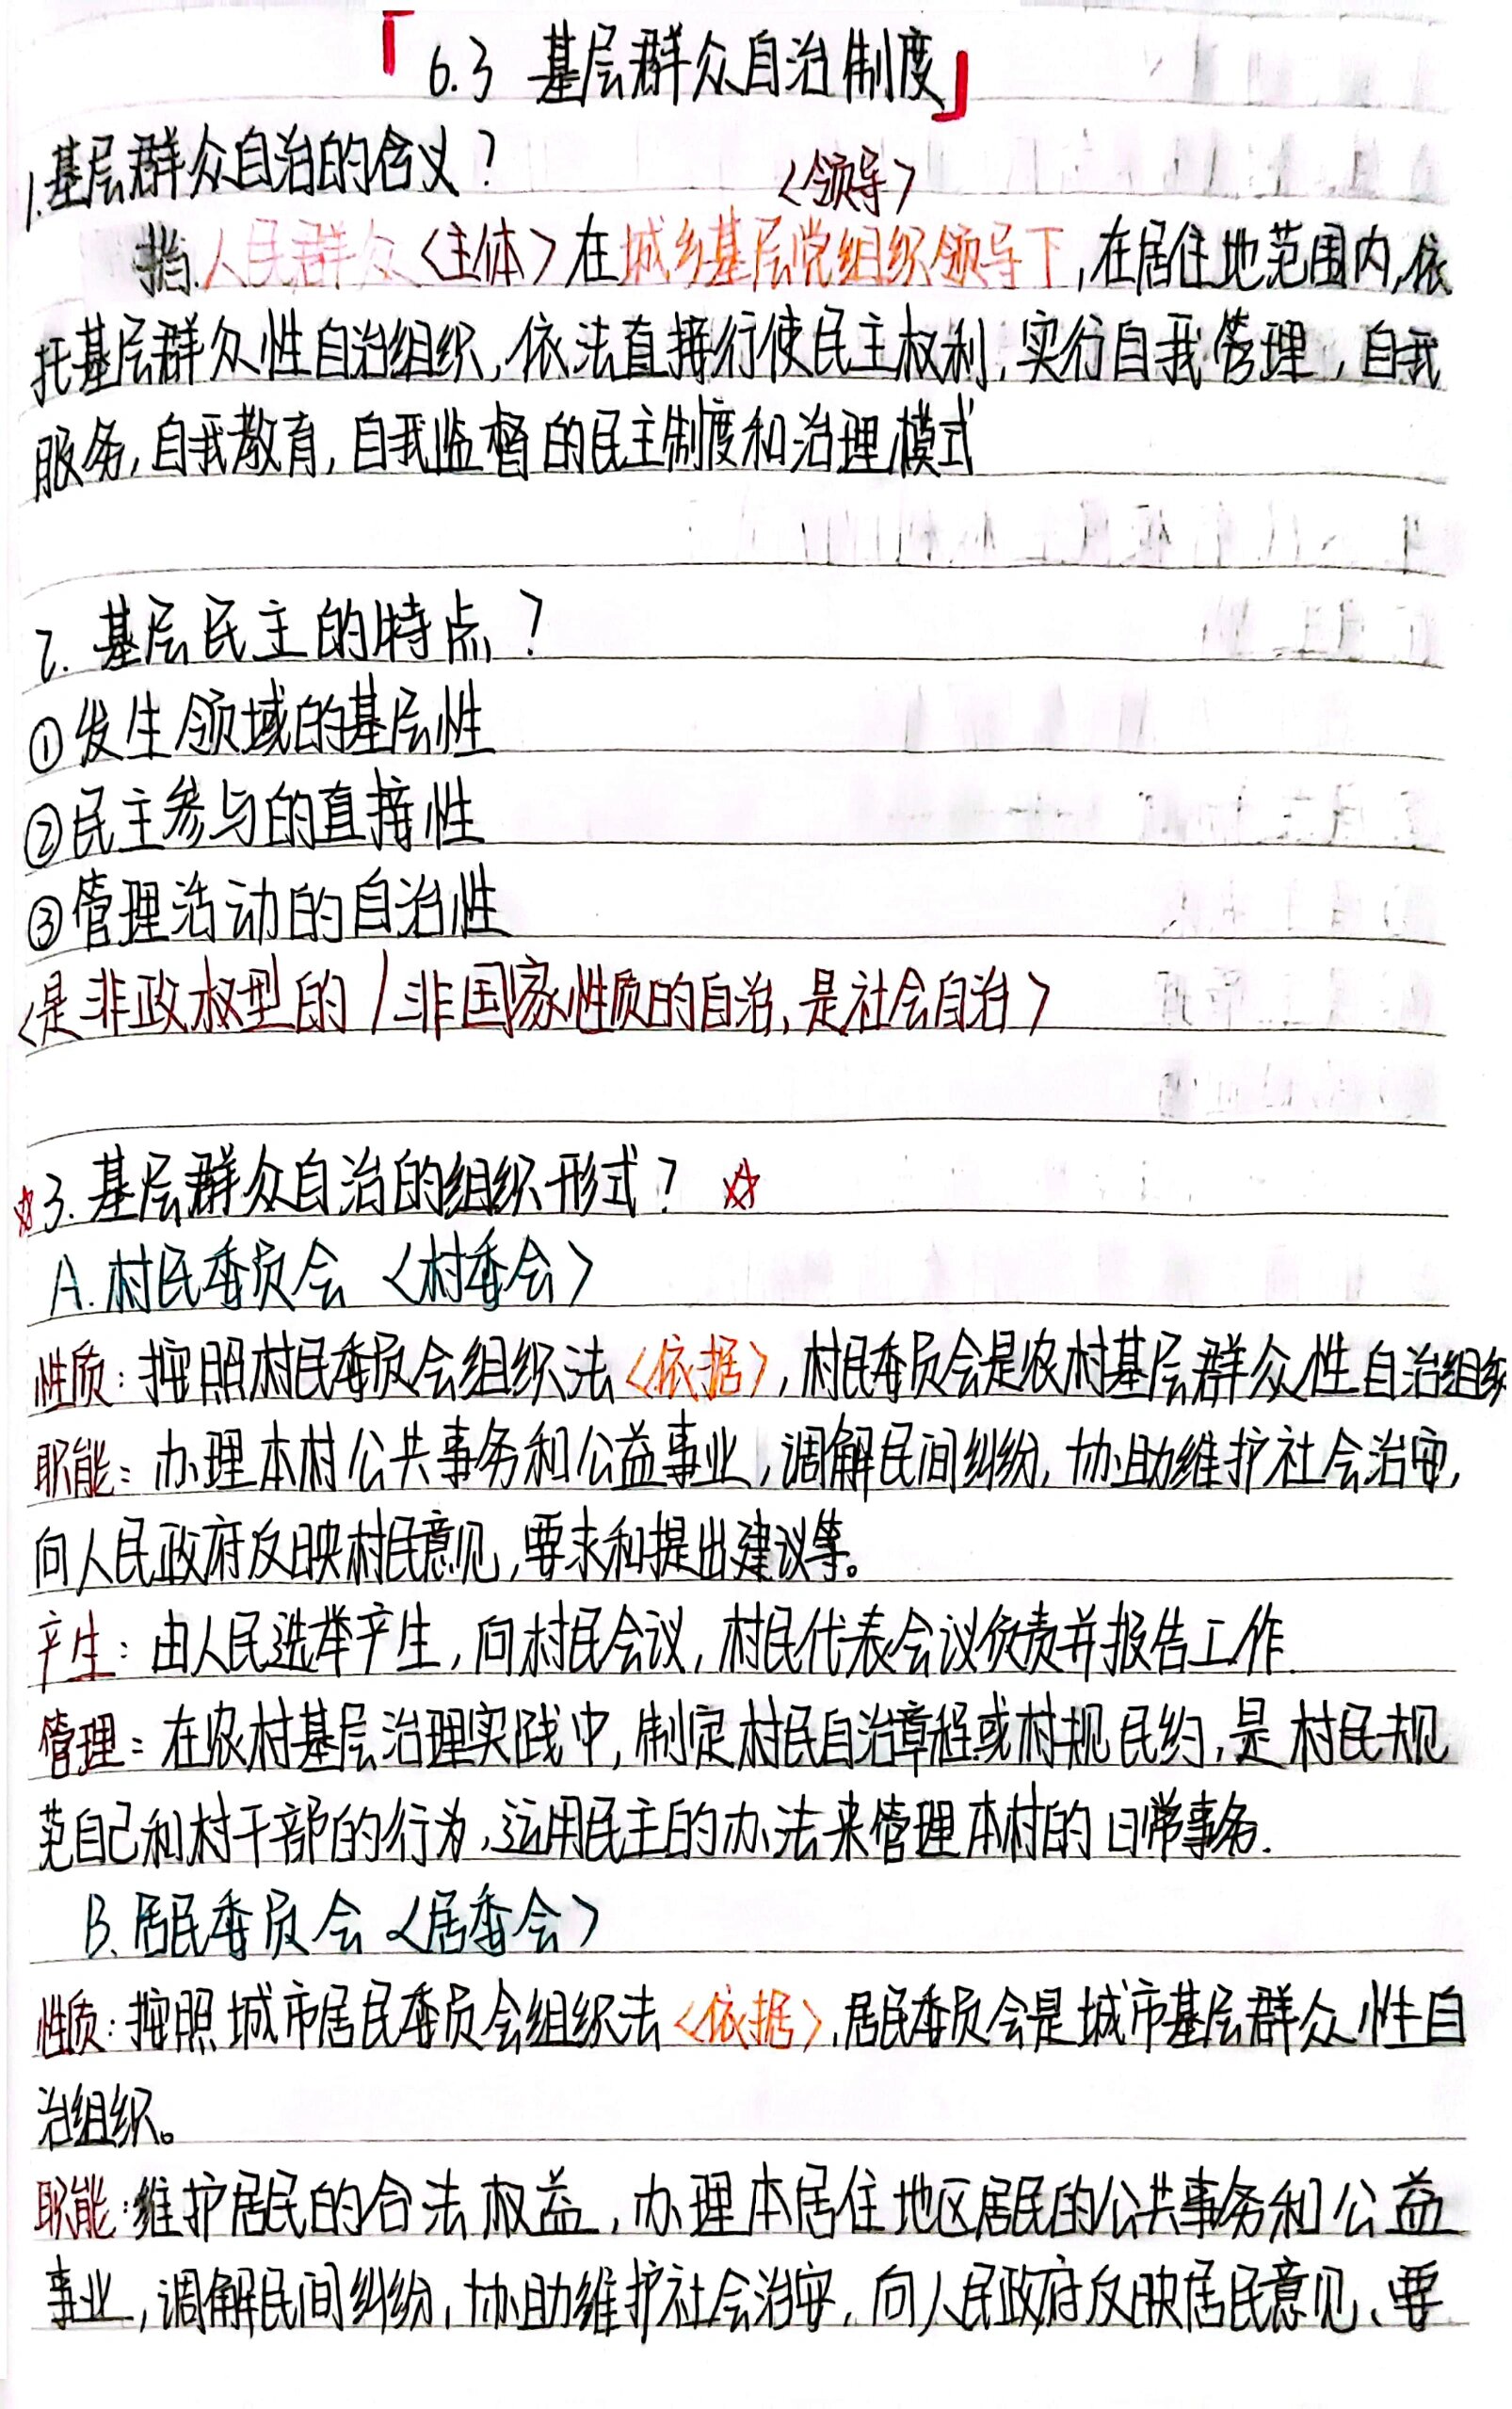 「6.3 基层群众自治制度」
1.基层群众自治的含义？
<领导>
指.人民群众<主体>在城乡基层党组织领导下,在居住地范围内,依
托基层群众性自治组织,依法直接行使民主权利,实行自我管理,自我
服务,自我教育,自我监督的民主制度和治理模式
2.基层民主的特点？
①发生领域的基层性
②民主参与的直接性
③管理活动的自治性
<是非政权型的/非国家性质的自治,是社会自治>
☆3.基层群众自治的组织形式？☆
A.村民委员会<村委会>
性质:按照村民委员会组织法<依据>,村民委员会是农村基层群众性自治组织
职能:办理本村公共事务和公益事业,调解民间纠纷,协助维护社会治安,
向人民政府反映村民意见,要求和提出建议等。
产生:由人民选举产生,向村民会议,村民代表会议负责并报告工作.
管理:在农村基层治理实践中,制定村民自治章程或村规民约,是村民规
范自己和村干部的行为,运用民主的办法来管理本村的日常事务.
B.居民委员会<居委会>
性质:按照城市居民委员会组织法<依据>,居民委员会是城市基层群众性自
治组织。
职能:维护居民的合法权益,办理本居住地区居民的公共事务和公益
事业,调解民间纠纷,协助维护社会治安,向人民政府反映居民意见、要